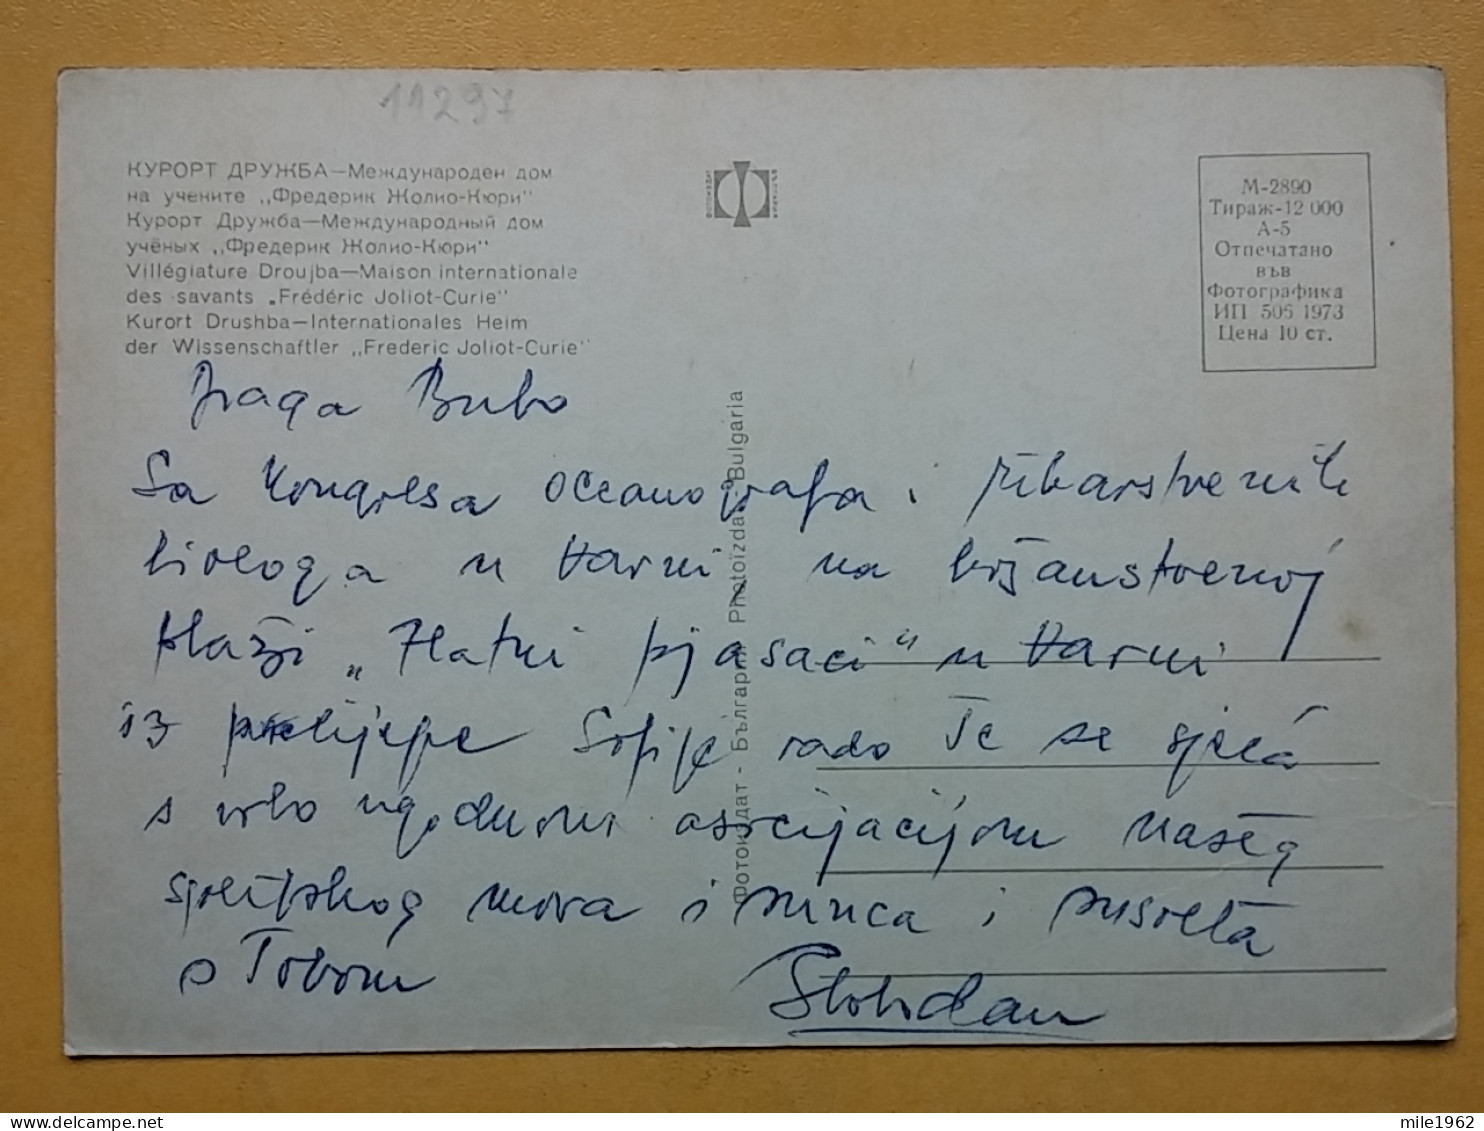 11297
КУРОРТ ДРУЖБА—Международен дом
на учените „Фредерик Жолио-Кюри"
Курорт Дружба—Международный дом
учёных „Фредерик Жолио-Кюри"
Villégiature Droujba—Maison internationale
des savants „Frédéric Joliot-Curie"
Kurort Drushba—Internationales Heim
der Wissenschaftler „Frederic Joliot-Curie"
М-2890
Тираж-12 000
А-5
Отпечатано
във
Фотографика
ИП 505 1973
Цена 10 ст.
Фотоиздат - България Photoïzdat-Bulgaria
Draga Bubo
Sa kongresa oceanografa i ribarstvenih
biologa u Varni, na božanstvenoj
plaži „Zlatni pjasaci" u Varni
iz prelijepe Sofije rado Te se sjeća
s vrlo ugodnom asocijacijom našeg
splitskog mora i sunca i susreta
s Tobom
Slobodan
mile1962